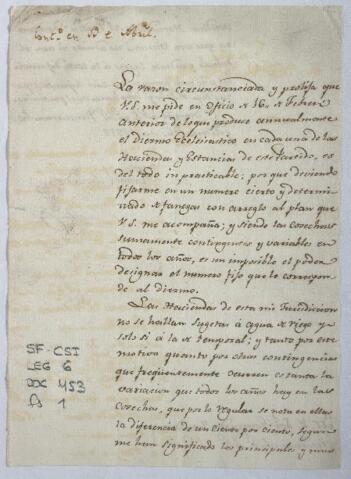 Cont.o en 13 de Abril.
La razon circunstanciada y prolija que
V.S. me pide en Oficio de 16. de Febrero
anterior de lo que produce annualmente
el Diezmo Ecclesiastico en cada una de las
Haciendas y Estancias de este Partido, es
del todo inpracticable; por que deviendo
fijarme en un numero cierto y determi
nado de fanegas con arreglo al plan que
V.S. me acompaña; y siendo las cosechas
sumamente contingentes y variables en
todos los años, es un imposible el poder
designar el numero fijo que le correspon
de al diezmo.
Las Haciendas de esta mi Jurisdiccion
no se hallan sugetas á agua de riego y
solo si á la de temporal; y tanto por este
motivo quanto por otras contingencias
que frequentemente ocurren es tanta la
variacion que todos los años hay en las
cosechas, que por lo regular se nota en ellas
la diferencia de un ciento por ciento, segun
me han significado los principales y mas
SF-CSI
LEG 6
DOC 453
fs 1